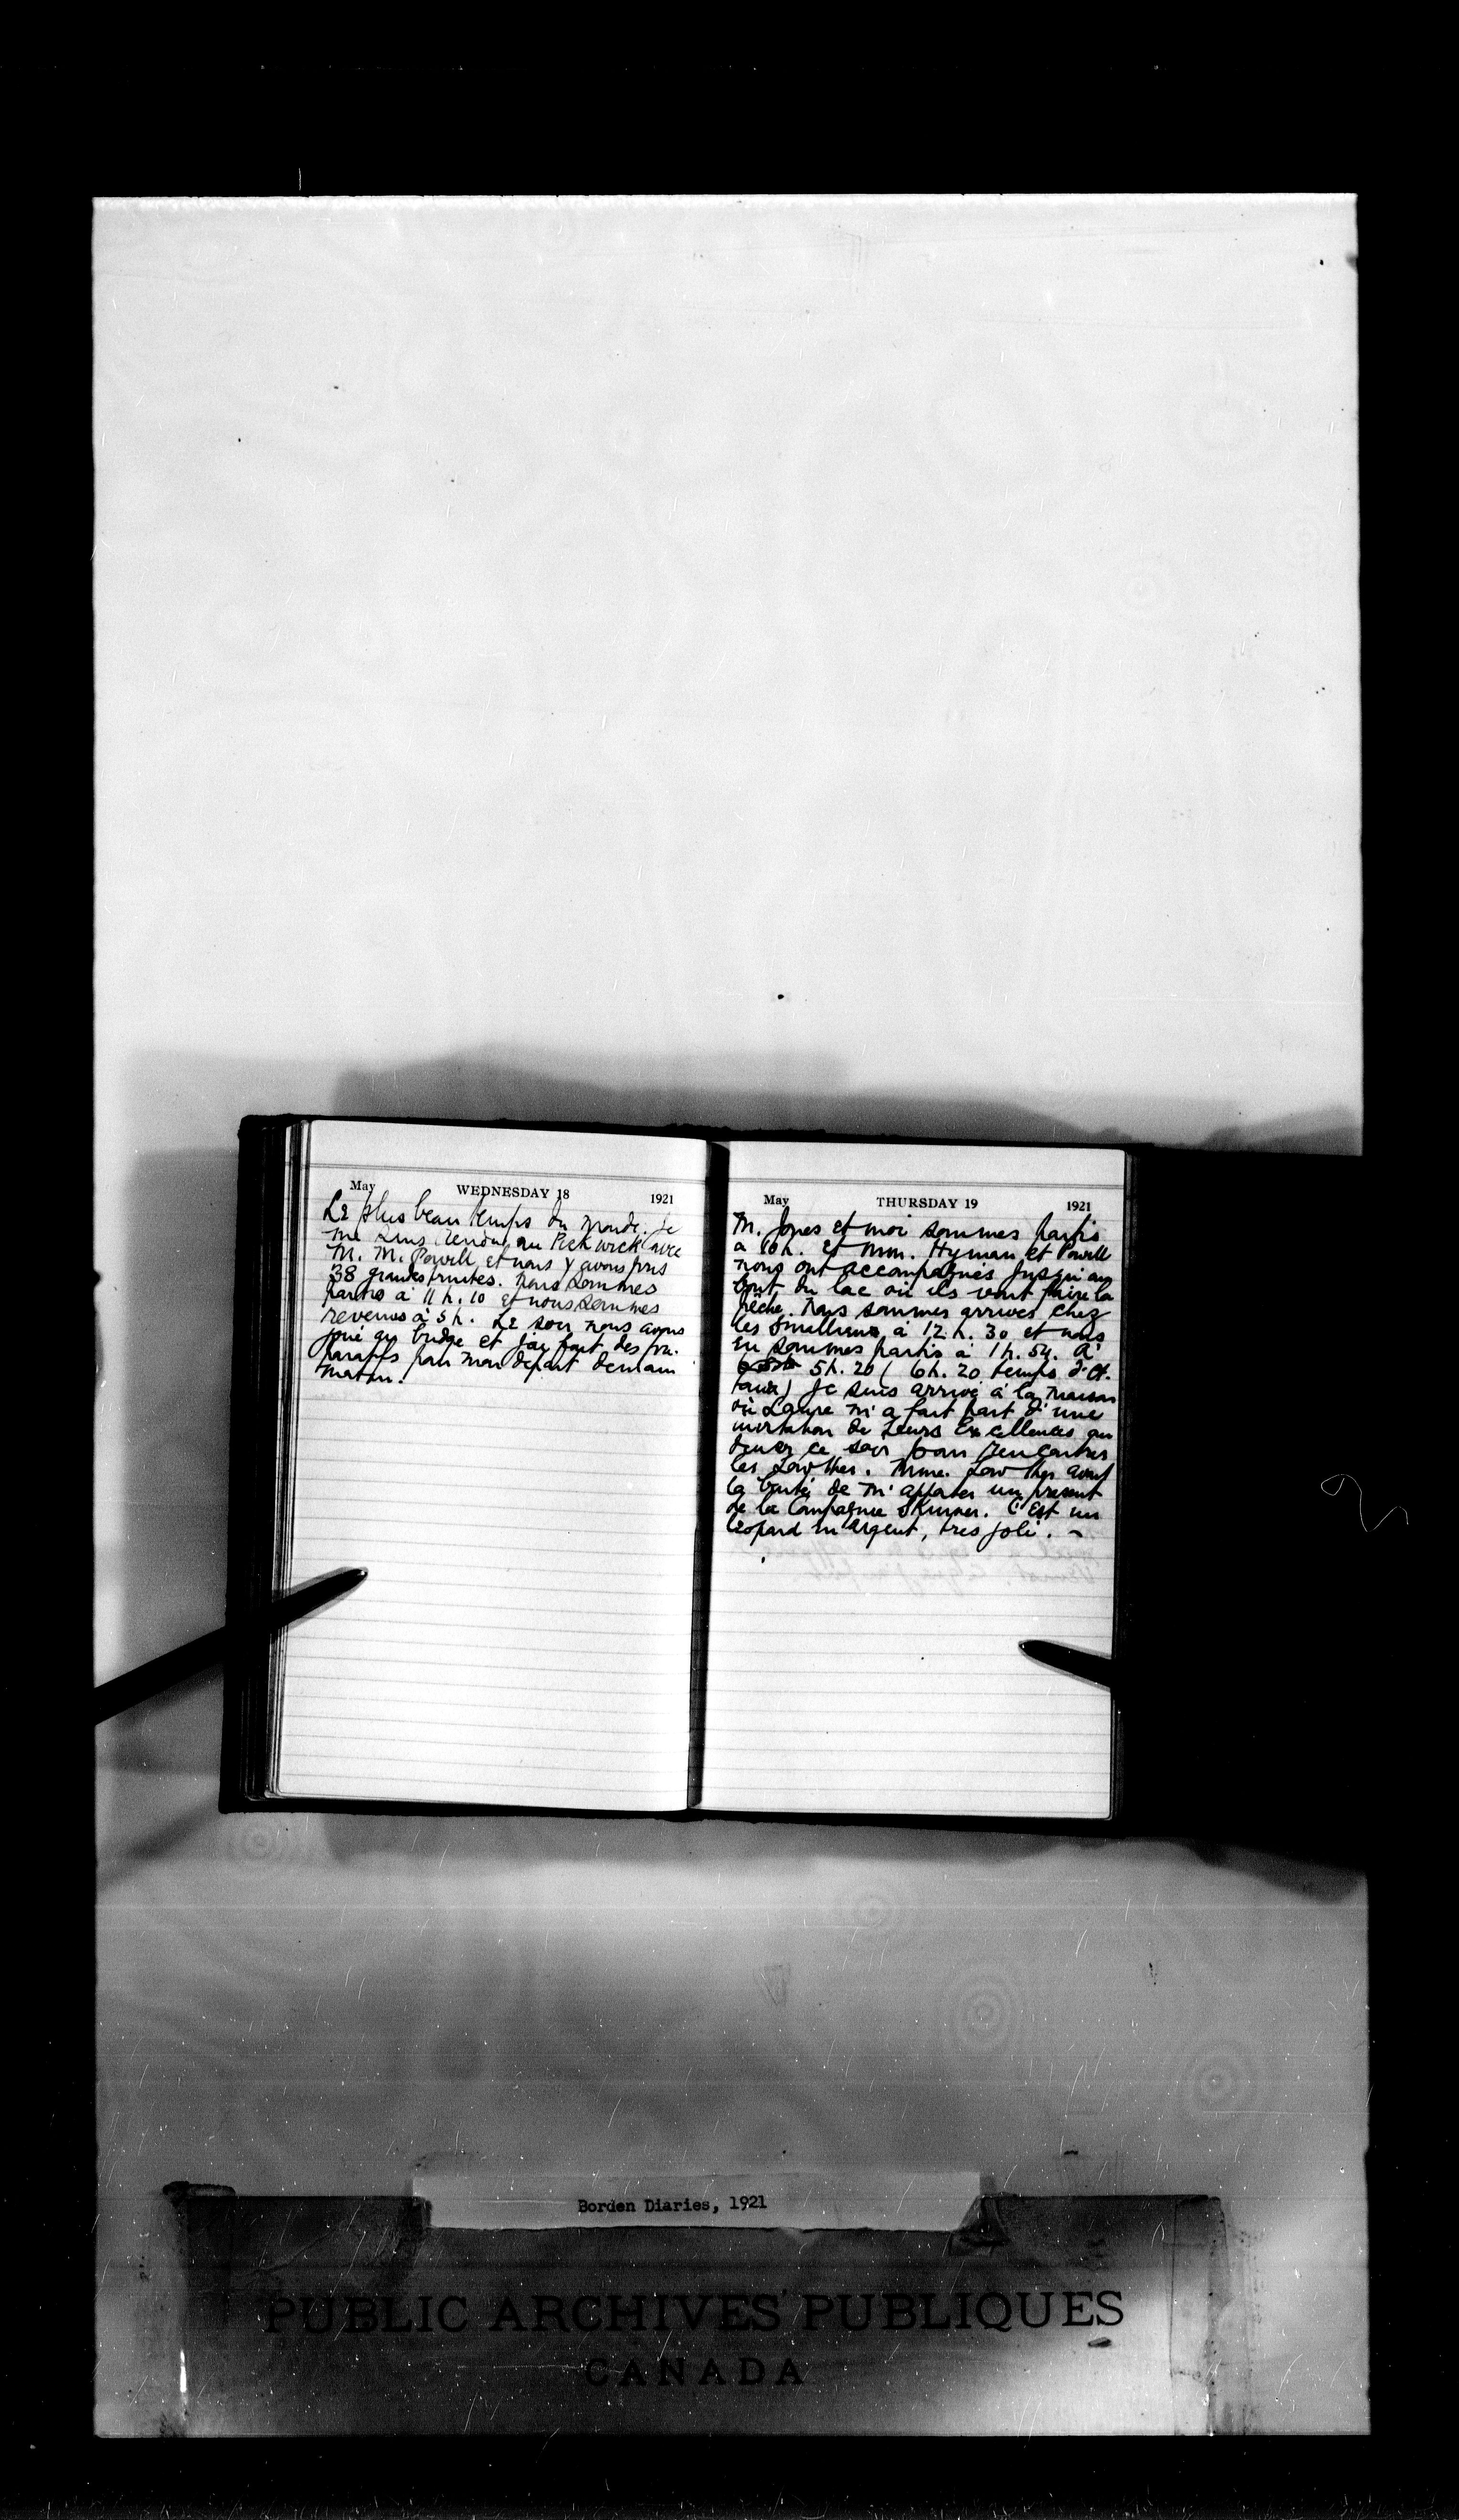 May WEDNESDAY 18 1921
Le plus beau temps du monde. Je
me suis rendu au Pickwick avec
M. M. Powell et nous y avons pris
38 grandes truites. Nous sommes
partis à 11 h. 10 et nous sommes
revenus à 5 h. Le soir nous avons
joué au bridge et j'ai fait des pré-
paratifs pour mon départ demain
matin.
May THURSDAY 19 1921
M. Jones et moi sommes partis
à 10 h. et Mm. Hyman et Powell
nous ont accompagnés jusqu'au
bout du lac où ils vont faire la
pêche. Nous sommes arrivés chez
les à 12 h. 30 et nous
en sommes partis à 1 h. 54. A
5 h. 20 (6 h. 20 temps d'Ot-
tawa) je suis arrivé à la maison
où Laure m'a fait part d'une
invitation de Leurs Excellences au
diner ce soir pour rencontrer
les Lowther. Mme. Lowther avait
la bonté de m'apporter un présent
de la Compagnie Skinner. C'est un
léopard en argent, très joli. -
Borden Diaries, 1921
PUBLIC ARCHIVES PUBLIQUES
CANADA